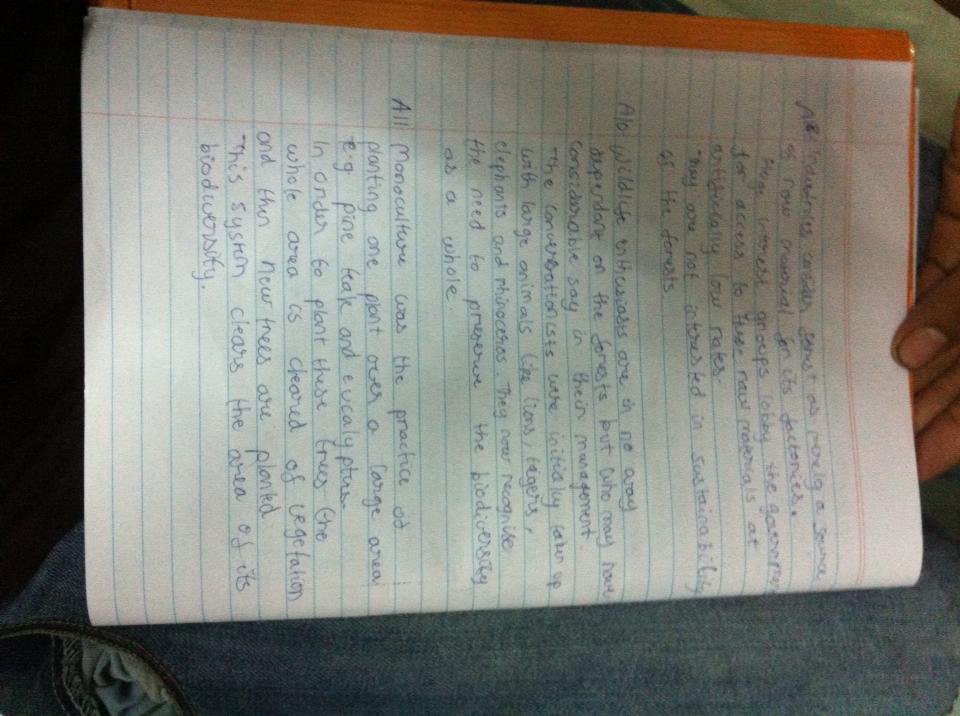 A8 Industries consider forest as merely a source
of raw material for its factories.
Huge interest groups lobby the government
for access to these raw materials at
artificially low rates.
They are not interested in sustainability
of the forests.
A10 Wildlife enthusiasts are in no way
dependant on the forests but who may have
considerable say in their management.
The conversationists were initially taken up
with large animals like lions, tigers,
elephants and rhinoceros. They now recognise
the need to preserve the biodiversity
as a whole.
A11 Monoculture was the practice of
planting one plant over a large area
e.g pine teak and eucalyptus.
In order to plant these trees the
whole area is cleared of vegetation
and then new trees are planted
This system clears the area of its
biodiversity.